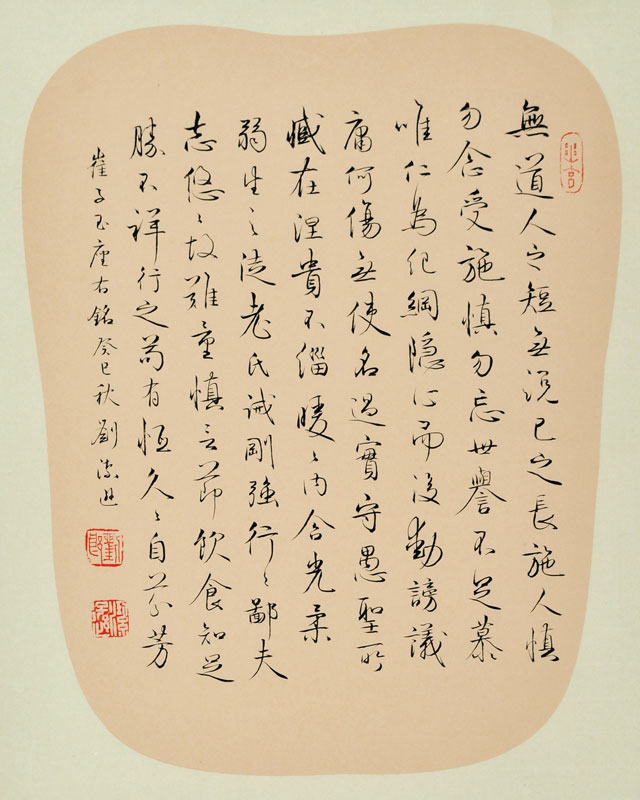 無道人之短無說己之長施人慎
勿念受施慎勿忘世譽不足慕
唯仁為紀綱隱心而後動謗議
庸何傷無使名過實守愚聖所
臧在涅貴不緇曖〻內含光柔
弱生之徒老氏誡剛強行〻鄙夫
志悠〻故難量慎言節飲食知足
勝不祥行之苟有恆久〻自芬芳
崔子玉座右銘癸巳秋劉